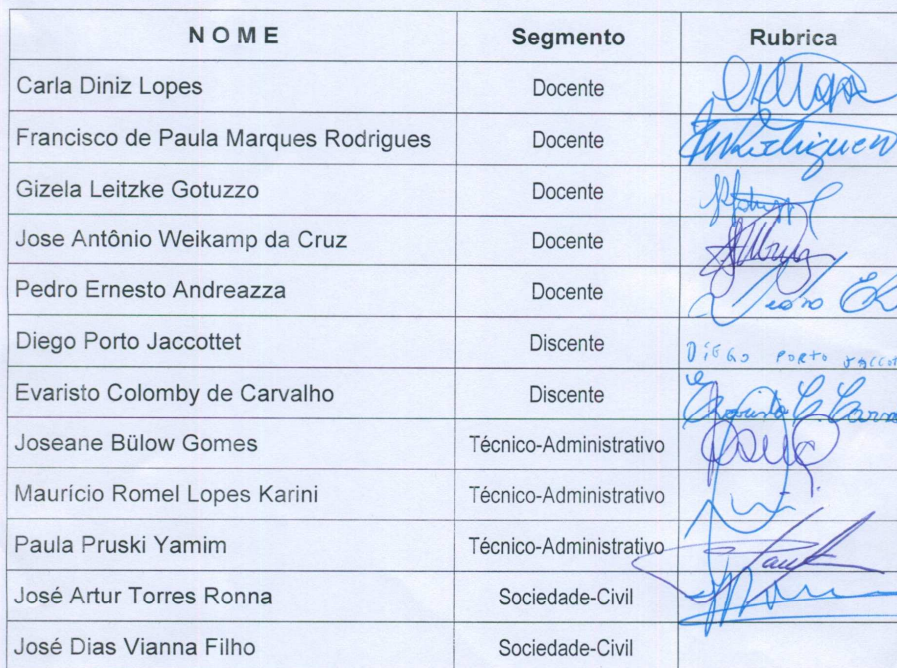 N O M E Segmento Rubrica
Carla Diniz Lopes Docente
Francisco de Paula Marques Rodrigues Docente
Gizela Leitzke Gotuzzo Docente
Jose Antônio Weikamp da Cruz Docente
Pedro Ernesto Andreazza Docente Pedro
Diego Porto Jaccottet Discente DIEGO PORTO
Evaristo Colomby de Carvalho Discente Evaristo C.
Joseane Bülow Gomes Técnico-Administrativo
Maurício Romel Lopes Karini Técnico-Administrativo
Paula Pruski Yamim Técnico-Administrativo
José Artur Torres Ronna Sociedade-Civil
José Dias Vianna Filho Sociedade-Civil